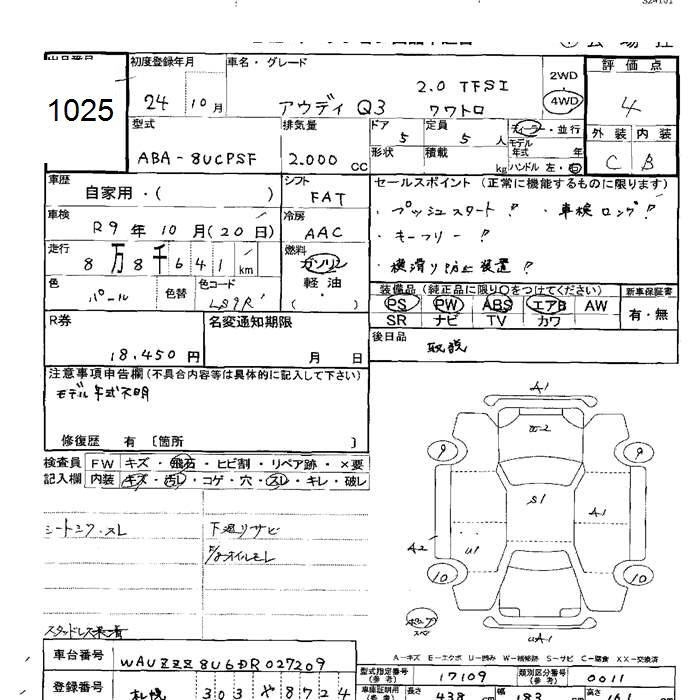 1025
初度登録年月
24年 10月
車名・グレード
アウディ Q3
2.0 TFSI
クワトロ
2WD
4WD
評価点
4
外装 内装
C B
型式
ABA-8UCPSF
排気量
2.000 CC
ドア
5
定員
5人
形状
積載
kg
ディーラー・並行
モデル
年式 年
ハンドル 左・右
車歴
自家用・( )
シフト
FAT
セールスポイント (正常に機能するものに限ります)
・プッシュスタート! ・車検ロング!
・キーフリー!
・横滑り防止装置!
車検
R9年 10月(20日)
冷房
AAC
走行
8万8千641km
燃料
ガソリン
軽油
( )
色
パール
色替
色コード
LS9R
装備品 (純正品に限り○をつけてください)
PS PW ABS エアB AW
SR ナビ TV カワ
新車保証書
有・無
R券
18.450円
名変通知期限
月 日
後日品
取説
注意事項申告欄 (不具合内容等は具体的に記入して下さい)
モデル年式不明
修復歴 有 〔箇所 〕
検査員
記入欄
FW キズ・飛石・ヒビ割・リペア跡・×要
内装 キズ・汚レ・コゲ・穴・スレ・キレ・破レ
シートシワ・スレ
下廻りサビ
オイルモレ
スタッドレス
A1
9
9
S1
A1
A2
U1
10
10
UA1
A-キズ E-エクボ U-凹み W-補修跡 S-サビ C-腐食 XX-交換済
車台番号
WAUZZZ8U6DR027209
登録番号
札幌 303 や 8724
型式指定番号
(参考)
17109
類別区分番号
(参考)
0011
長さ
438
幅
183
高さ
161